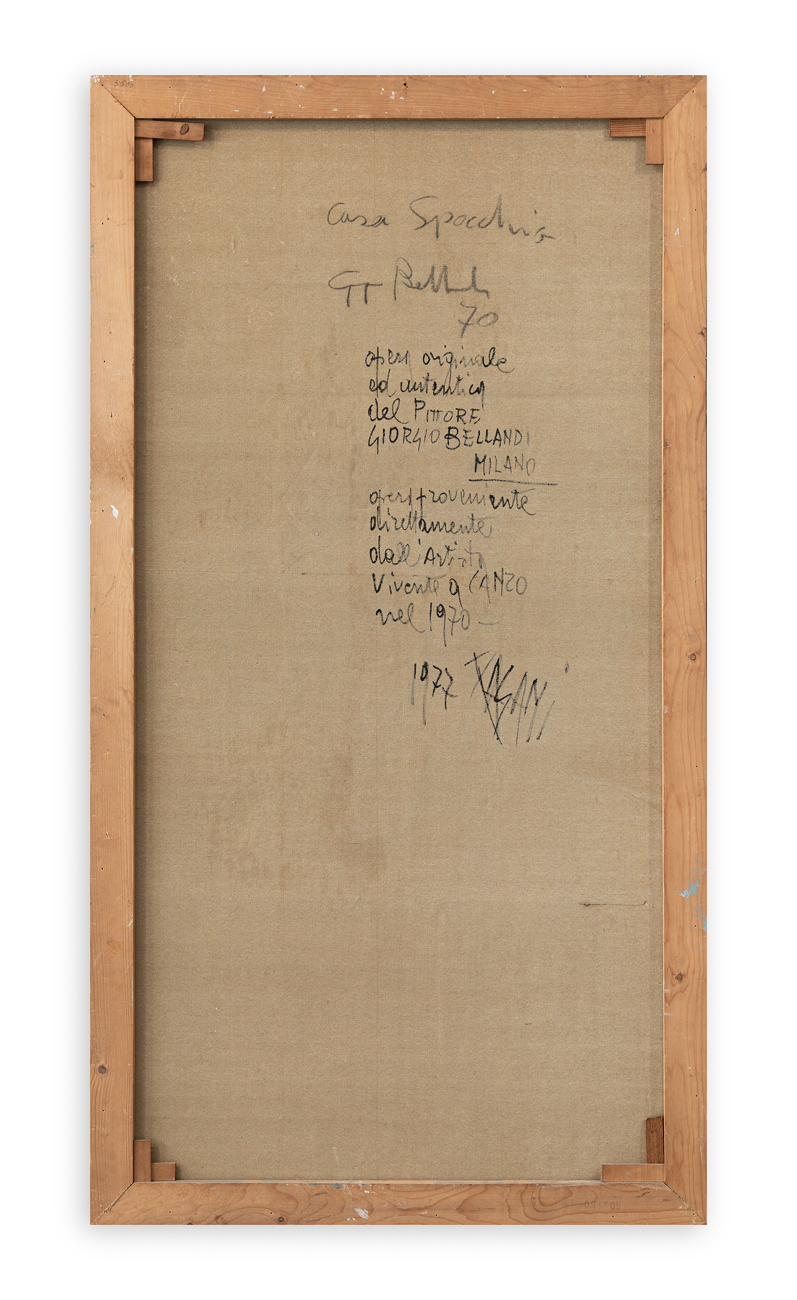 Casa Spocchia
70
opera originale
ed autentica
del PITTORE
GIORGIO BELLANDI
MILANO
opera proveniente
direttamente
dall'Artista
Vivente a CANZO
nel 1970 —
1977